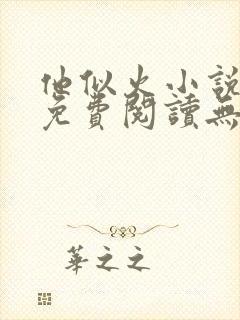 他似火小說
免費閱讀無
華之之